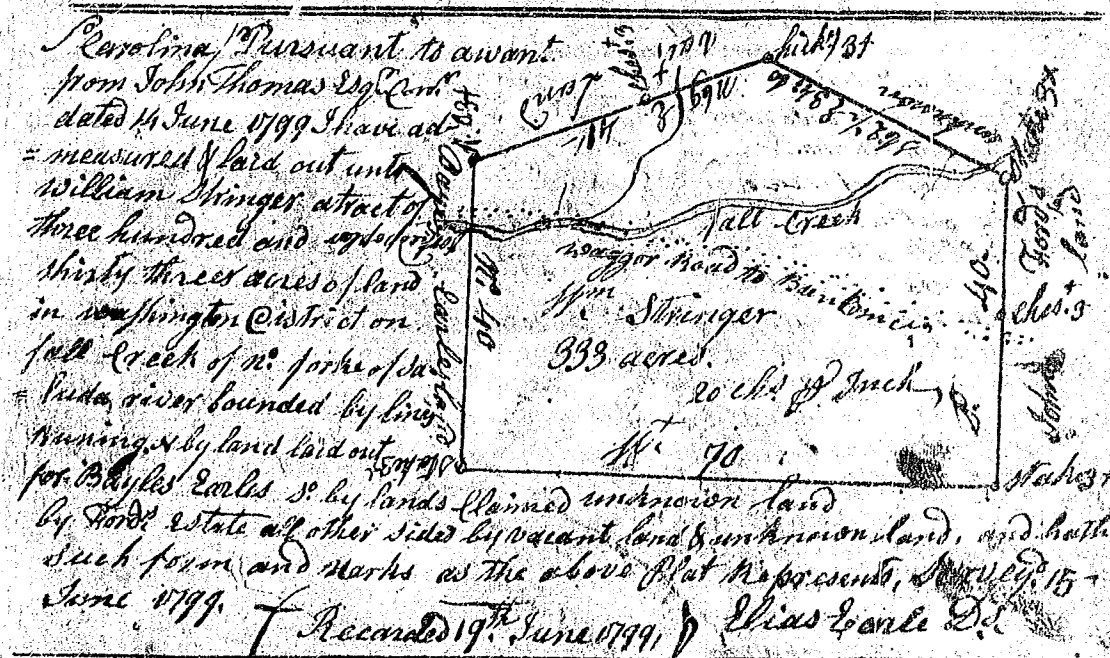 S Carolina Pursuant to a warrt
from John Thomas Esqr Comr
dated 14 June 1799 I have ad
= measured & laid out unto
William Stringer a tract of
three hundred and
thirty three acres of land
in washington District on
fall Creek of no forke of Sa
= luda river bounded by lines
Runing & by land laid out
for Bayles Earles so by lands Claimed
by Fords Estate all other sides by vacant land & unknown land, and hath
Such form and Marks as the above Plat Represents, Surveyd 15
June 1799.
Recorded 19th June 1799,
Elias Earle D.S.
Chest 3
hick 3+
vacant
unknown
Stake 3x
Fall Creek
waggon Road to Buncomb
Wm Stringer
333 acres.
20 chs pr Inch
No 40
Bayles Earles land
40
Johns Fords land
Ches+ 3
Wt 70
unknown land
Stake 3x